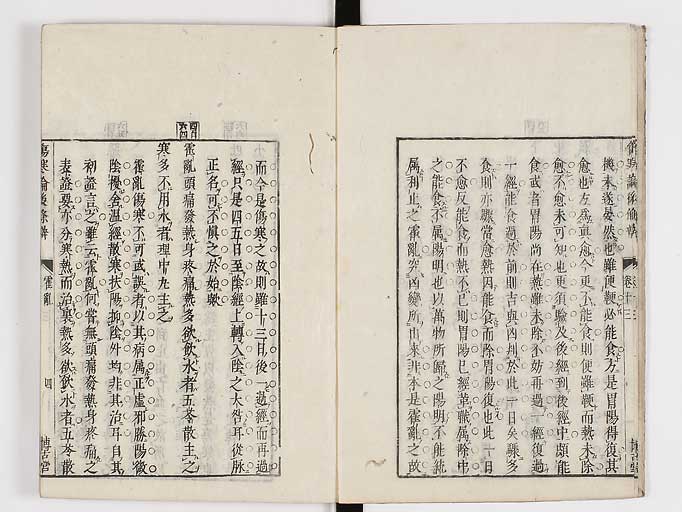 傷寒論後條辨
卷十三
機未遂晏然也雖便鞕必能食方是胃陽得復其
愈也左爲眞愈今更不能食則便雖鞕而熱未除
愈不愈未可知也更須驗及後經到後經中頗能
食或者胃陽尚在熱雖未除不妨再過一經復過
一經能食過於前則吉與凶判於此一日矣縣多
食則亦縣當愈熱因能食而除胃陽復也此一日
不愈反能食而熱不已則胃陽已經革職屬除中
之能食不屬陽明也以萬物所歸之陽明不能統
屬利止之霍亂突凶變所由來非本是霍亂之故
而今是傷寒之故則雖十三日後一過經而再過
經只是四五日至陰經上轉入陰之大咎耳從脉
正名可不愼之於始歟
霍亂頭痛發熱身疼痛熱多欲飲水者五苓散主之
寒多不用水者理中丸主之
霍亂傷寒不可或誤者以其病屬正虛邪勝陽微
陰擾舍溫經散寒扶陽抑陰外均非其治耳自其
利證言之雖云霍亂何嘗無頭痛發熱身疼痛之
表證要亦分寒熱而治寒熱多欲飲水者五苓散
傷寒論後條辨
霍亂
四
博古堂